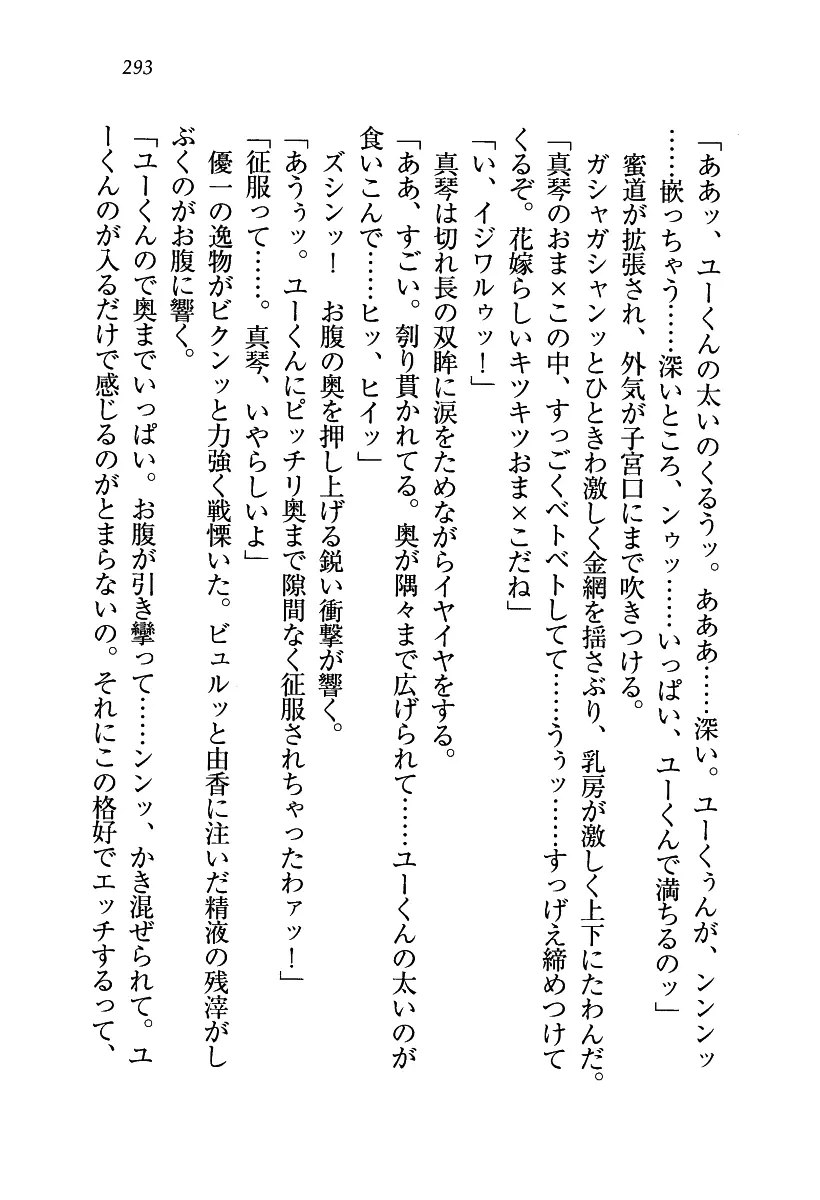 293
「ああッ、ユーくんの太いのくるうッ。あああ……深い。ユーくぅんが、ンンンッ
……嵌っちゃう……深いところ、ンゥッ……いっぱい、ユーくんで満ちるのッ」
蜜道が拡張され、外気が子宮口にまで吹きつける。
ガシャガシャンッとひときわ激しく金網を揺さぶり、乳房が激しく上下にたわんだ。
「真琴のおま×この中、すっごくベトベトしてて……うぅッ……すっげえ締めつけて
くるぞ。花嫁らしいキツキツおま×こだね」
「い、イジワルゥッ！」
真琴は切れ長の双眸に涙をためながらイヤイヤをする。
「ああ、すごい。刳り貫かれてる。奥が隅々まで広げられて……ユーくんの太いのが
食いこんで……ヒッ、ヒイッ」
ズシンッ！　お腹の奥を押し上げる鋭い衝撃が響く。
「あうぅッ。ユーくんにピッチリ奥まで隙間なく征服されちゃったわァッ！」
「征服って……。真琴、いやらしいよ」
優一の逸物がビクンッと力強く戦慄いた。ビュルッと由香に注いだ精液の残滓がし
ぶくのがお腹に響く。
「ユーくんので奥までいっぱい。お腹が引き攣って……ンンッ、かき混ぜられて。ユ
ーくんのが入るだけで感じるのがとまらないの。それにこの格好でエッチするって、